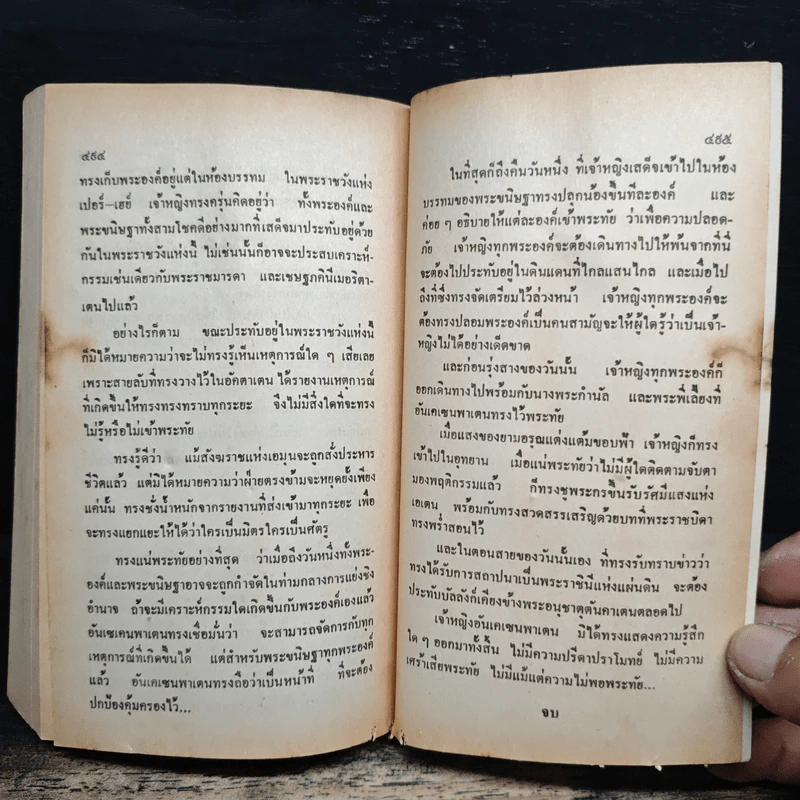 ๔๙๔
ทรงเก็บพระองค์อยู่แต่ในห้องบรรทม ในพระราชวังแห่ง
เปอร์-เฮย์ เจ้าหญิงทรงครุ่นคิดอยู่ว่า ทั้งพระองค์และ
พระขนิษฐาทั้งสามโชคดีอย่างมากที่เสด็จมาประทับอยู่ด้วย
กันในพระราชวังแห่งนี้ ไม่เช่นนั้นก็อาจจะประสบเคราะห์-
กรรมเช่นเดียวกับพระราชมารดา และเชษฐภคินีเมอริตา-
เตนไปแล้ว
อย่างไรก็ตาม ขณะประทับอยู่ในพระราชวังแห่งนี้
ก็มิได้หมายความว่าจะไม่ทรงรู้เห็นเหตุการณ์ใด ๆ เสียเลย
เพราะสายลับที่ทรงวางไว้ในอัคตาเตน ได้รายงานเหตุการณ์
ที่เกิดขึ้นให้ทรงทรงทราบทุกระยะ จึงไม่มีสิ่งใดที่จะทรง
ไม่รู้หรือไม่เข้าพระทัย
ทรงรู้ดีว่า แม้สังฆราชแห่งเอมุนจะถูกสั่งประหาร
ชีวิตแล้ว แต่มิได้หมายความว่าฝ่ายตรงข้ามจะหยุดยั้งเพียง
แค่นั้น ทรงชั่งน้ำหนักจากรายงานที่ส่งเข้ามาทุกระยะ เพื่อ
จะทรงแยกแยะให้ได้ว่าใครเป็นมิตรใครเป็นศัตรู
ทรงแน่พระทัยอย่างที่สุด ว่าเมื่อถึงวันหนึ่งทั้งพระ-
องค์และพระขนิษฐาอาจจะถูกกำจัดในท่ามกลางการแย่งชิง
อำนาจ ถ้าจะมีเคราะห์กรรมใดเกิดขึ้นกับพระองค์เองแล้ว
อันเซเคนพาเตนทรงเชื่อมั่นว่า จะสามารถจัดการกับทุก
เหตุการณ์ที่เกิดขึ้นได้ แต่สำหรับพระขนิษฐาทุกพระองค์
แล้ว อันเคเซนพาเตนทรงถือว่าเป็นหน้าที่ ที่จะต้อง
ปกป้องคุ้มครองไว้...
๔๙๕
ในที่สุดก็ถึงคืนวันหนึ่ง ที่เจ้าหญิงเสด็จเข้าไปในห้อง
บรรทมของพระขนิษฐาทรงปลุกน้องขึ้นทีละองค์ และ
ค่อย ๆ อธิบายให้แต่ละองค์เข้าพระทัย ว่าเพื่อความปลอด-
ภัย เจ้าหญิงทุกพระองค์จะต้องเดินทางไปให้พ้นจากที่นี่
จะต้องไปประทับอยู่ในดินแดนที่ไกลแสนไกล และเมื่อไป
ถึงที่ซึ่งทรงจัดเตรียมไว้ล่วงหน้า เจ้าหญิงทุกพระองค์จะ
ต้องทรงปลอมพระองค์เป็นคนสามัญจะให้ผู้ใดรู้ว่าเป็นเจ้า-
หญิงไม่ได้อย่างเด็ดขาด
และก่อนรุ่งสางของวันนั้น เจ้าหญิงทุกพระองค์ก็
ออกเดินทางไปพร้อมกับนางพระกำนัล และพระพี่เลี้ยงที่
อันเคเซนพาเตนทรงไว้พระทัย
เมื่อแสงของยามอรุณแต่งแต้มขอบฟ้า เจ้าหญิงก็ทรง
เข้าไปในอุทยาน เมื่อแน่พระทัยว่าไม่มีผู้ใดติดตามจับตา
มองพฤติกรรมแล้ว ก็ทรงชูพระกรขึ้นรับรัศมีแสงแห่ง
เอเตน พร้อมกับทรงสวดสรรเสริญด้วยบทที่พระราชบิดา
ทรงพร่ำสอนไว้
และในตอนสายของวันนั้นเอง ที่ทรงรับทราบข่าวว่า
ทรงได้รับการสถาปนาเป็นพระราชินีแห่งแผ่นดิน จะต้อง
ประทับบัลลังก์เคียงข้างพระอนุชาตุตันคาเตนตลอดไป
เจ้าหญิงอันเคเซนพาเตน มิได้ทรงแสดงความรู้สึก
ใด ๆ ออกมาทั้งสิ้น ไม่มีความปรีดาปราโมทย์ ไม่มีความ
เศร้าเสียพระทัย ไม่มีแม้แต่ความไม่พอพระทัย...
จบ